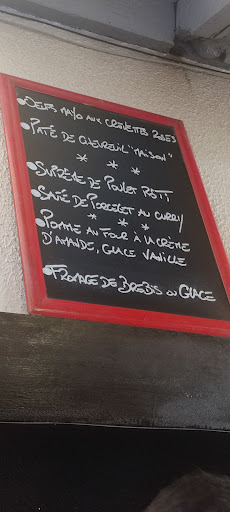 • Oeufs mayo aux crevettes roses
• Pâté de chevreuil "maison"
* * *
• Suprême de poulet rôti
• Sauté de porcelet au curry
* * *
• Pomme au four à la crème
d'amande, glace vanille
• Fromage de brebis ou glace